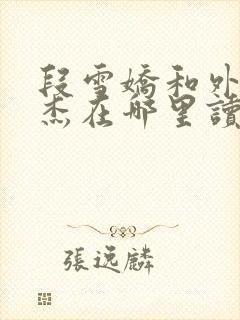 段雪嬌和外
杰在哪里讀
張逸麟